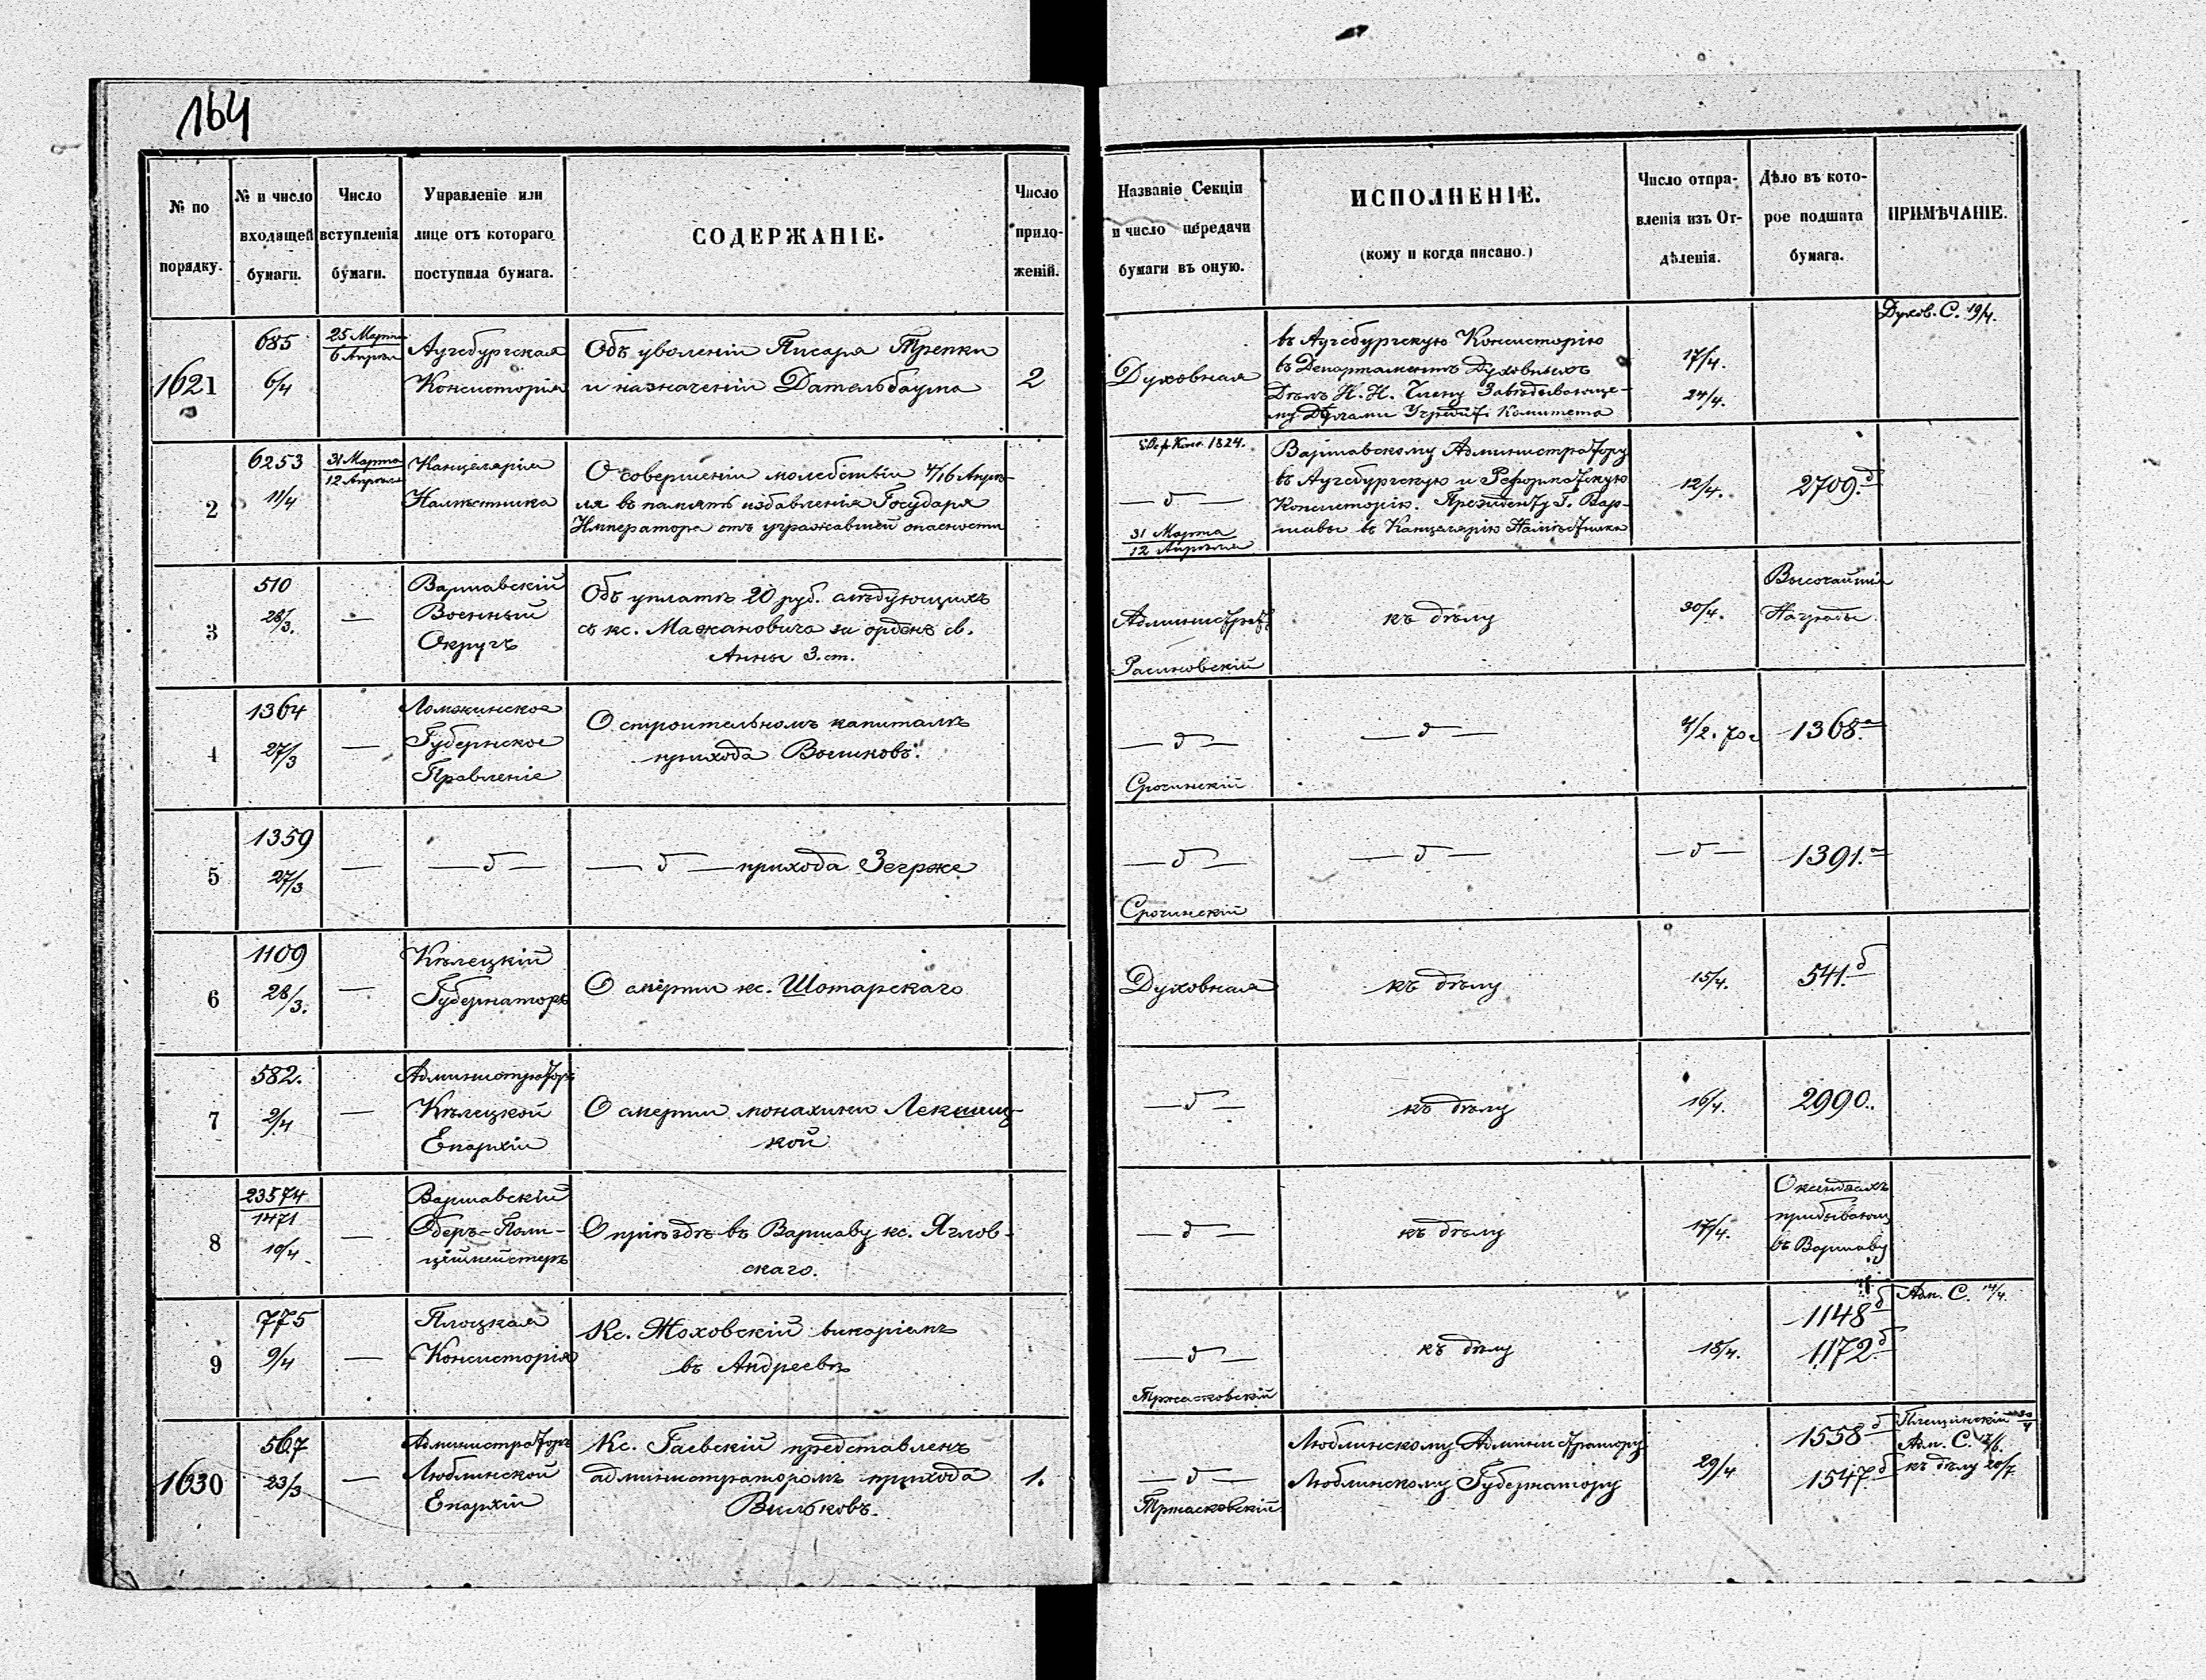 164
№ по порядку.
№ и число входящей бумаги.
Число вступленія бумаги.
Управленіе или лице отъ котораго поступила бумага.
СОДЕРЖАНІЕ.
Число приложеній.
Названіе Секціи и число передачи бумаги въ оную.
ИСПОЛНЕНІЕ.
(кому и когда писано.)
Число отправленія изъ Отдѣленія.
Дѣло въ которое подшита бумага.
ПРИМѢЧАНІЕ.
1621
685
6/4
25 Марта
6 Апрѣля
Аугсбургская
Консисторія
Объ уволеніи Писаря Трепки
и назначеніи Дательбаума
2
Духовная
въ Аугсбургскую Консисторію
въ Департаментъ Духовныхъ
Дѣлъ И. И. Члену Завѣдывающе-
му Дѣлами Учредит. Комитета
17/4.
24/4.
Духов. С. 19/4.
2
6253
11/4
31 Марта
12 Апрѣля
Канцелярія
Намѣстника
О совершеніи молебствія 4/16 Апрѣ-
ля въ память избавленія Государя
Императора отъ угрожавшей опасности
1824.
— д —
31 Марта
12 Апрѣля
Варшавскому Администратору
въ Аугсбургскую и Реформатскую
Консисторію. Президенту Г. Вар-
шавы въ Канцелярію Намѣстника
12/4.
2709. д
3
510
28/3.
—
Варшавскій
Военный
Округъ
Объ уплатѣ 20 руб. слѣдующихъ
съ кс. Мажановича за орденъ св.
Анны 3. ст.
Администрат.
Расиновскій
къ дѣлу
30/4.
Высочайшія
Награды
4
1364
27/3
—
Ломжинское
Губернское
Правленіе
О строительномъ капиталѣ
прихода Вошковъ.
— д —
Срочинскій
— д —
4/2. 70 г
1368. а
5
1359
27/3
—
— д —
— д — прихода Зегрже
— д —
Срочинскій
— д —
— д —
1391. а
6
1109
28/3.
—
Кѣлецкій
Губернаторъ
О смерти кс. Шотарскаго
Духовная
къ дѣлу
15/4.
541. б
7
582.
2/4
—
Администраторъ
Кѣлецкой
Епархіи
О смерти монахини Лекшиц-
кой
— д —
къ дѣлу
16/4.
2990.
8
23574
1471
10/4
—
Варшавскій
Оберъ-Поли-
ціймейстеръ
О пріѣздѣ въ Варшаву кс. Яглов-
скаго.
— д —
къ дѣлу
17/4.
О ксендзахъ
прибывающ.
въ Варшаву
9
775
9/4
—
Плоцкая
Консисторія
Кс. Жоховскій викаріемъ
въ Андреевѣ
— д —
къ дѣлу
18/4.
1148 б
1172. б
Адм. С. 14/4.
1630
567
23/3
—
Администраторъ
Люблинской
Епархіи
Кс. Гаевскій представленъ
администраторомъ прихода
Вильковъ.
1.
— д —
Тржасковскій
Люблинскому Администратору
Люблинскому Губернатору
29/4
1558 б
1547. б
Адм. С.
къ дѣлу